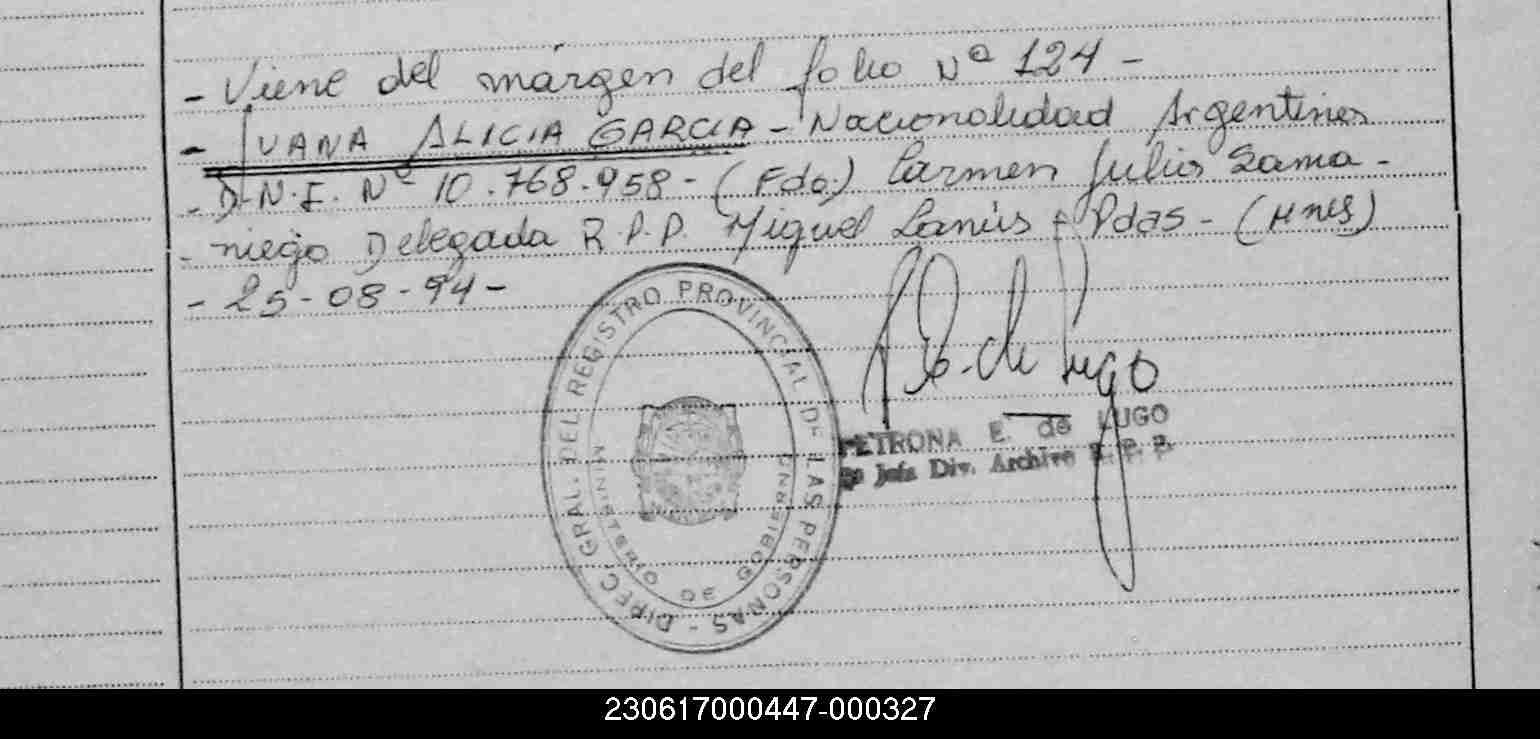 - Viene del márgen del folio Nº 124 -
- IVANA ALICIA GARCIA - Nacionalidad Argentina
- D.N.I. Nº 10.768.958 - (Fdo.) Carmen Julia Sama -
- niego Delegada R.P.P. Miguel Lanús - Pdas - (Mnes)
- 25-08-94 -
DIREC. GRAL. DEL REGISTRO PROVINCIAL DE LAS PERSONAS -
MINISTERIO DE GOBIERNO
de Lugo
PETRONA E. de LUGO
Jefa Div. Archivo R. P. P.
230617000447-000327